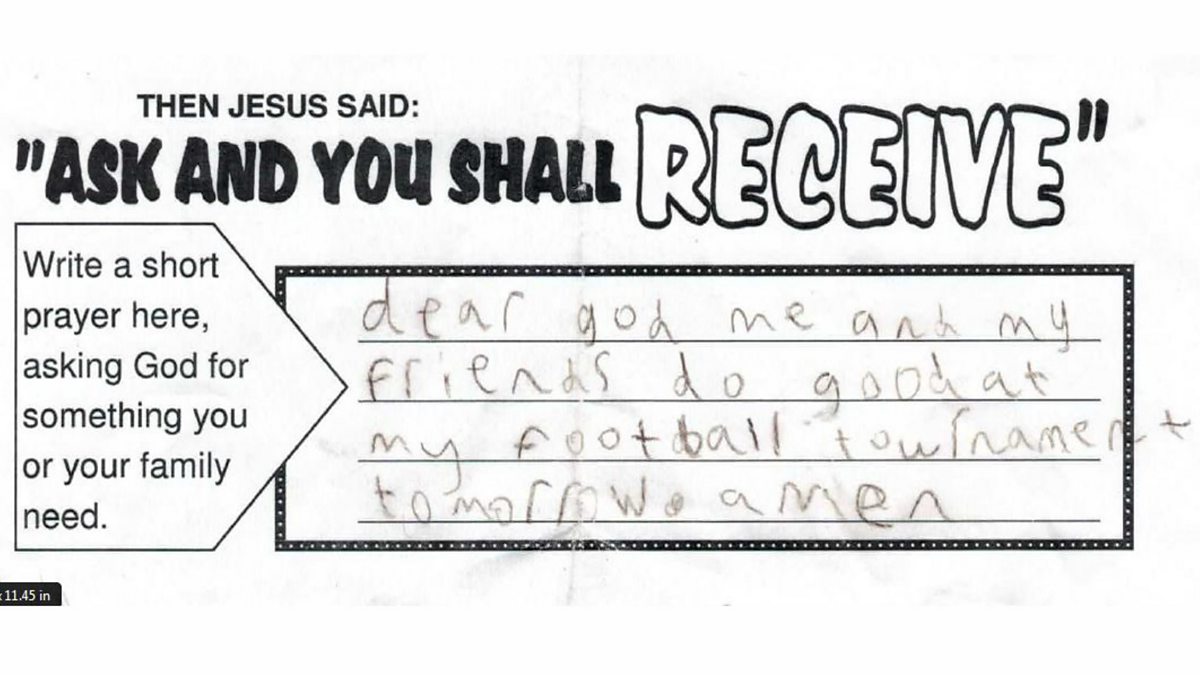 THEN JESUS SAID:
"ASK AND YOU SHALL RECEIVE"
Write a short
prayer here,
asking God for
something you
or your family
need.
dear god me and my
friends do good at
my football tournament
tomorrow. amen
x 11.45 in